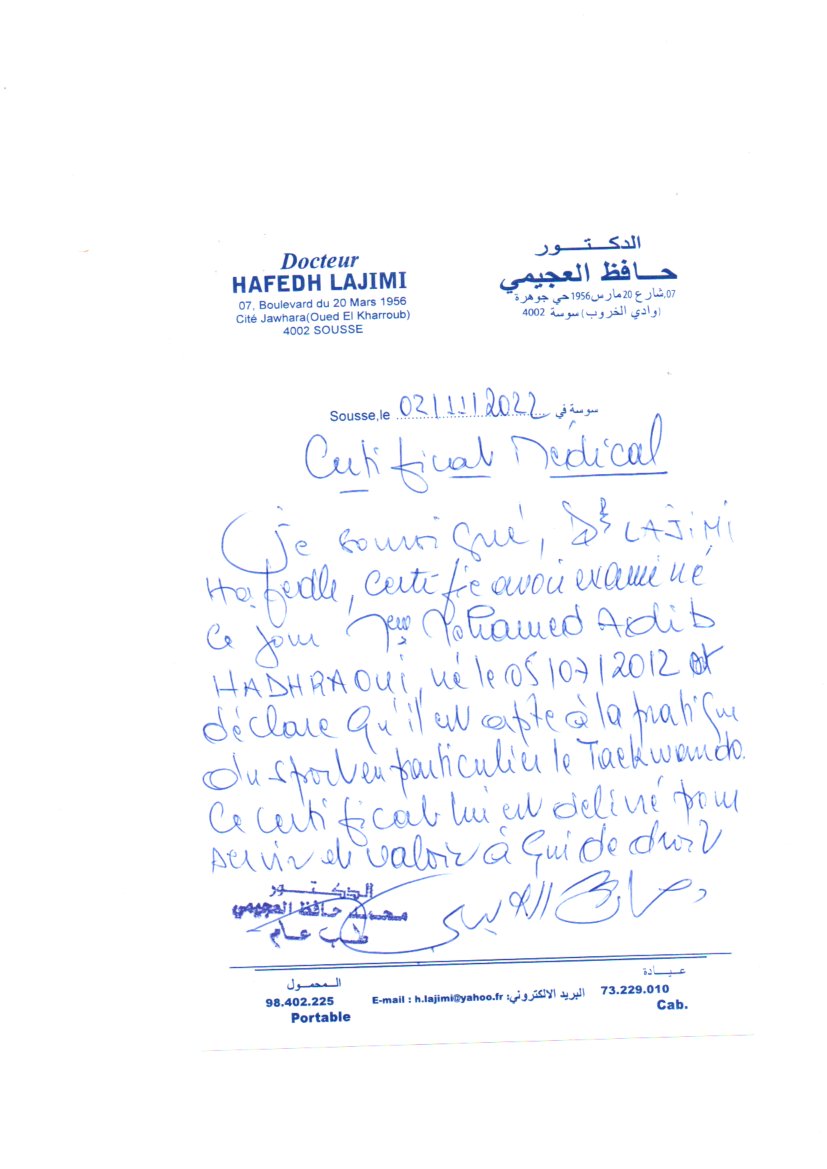 Docteur
HAFEDH LAJIMI
07, Boulevard du 20 Mars 1956
Cité Jawhara(Oued El Kharroub)
4002 SOUSSE
الدكتور
حافظ العجيمي
07,شارع 20 مارس 1956 حي جوهرة
(وادي الخروب) سوسة 4002
Sousse,le 02/11/2022 سوسة في
Certificat Medical
Je soussigné, Dr LAJIMI
Hafedh, certifie avoir examiné
ce jour Mohamed Adib
HADHRAOUI, né le 05/07/2012 et
déclare qu'il est apte à la pratique
du sport en particulier le Taekwando.
Ce certificat lui est délivré pour
servir et valoir à qui de droit
الدكتور
محمد حافظ العجيمي
طب عام
المحمول
98.402.225
Portable
E-mail : h.lajimi@yahoo.fr :البريد الالكتروني
عيادة
73.229.010
Cab.